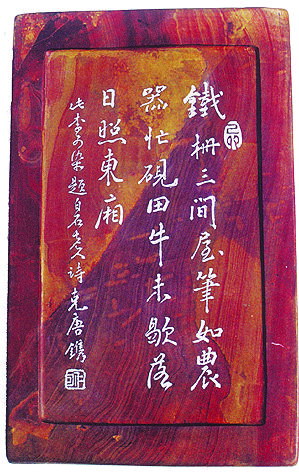 鐵柵三間屋筆如農
器忙硯田牛未歇落
日照東廂
此李可染題白石老人詩克唐鐫